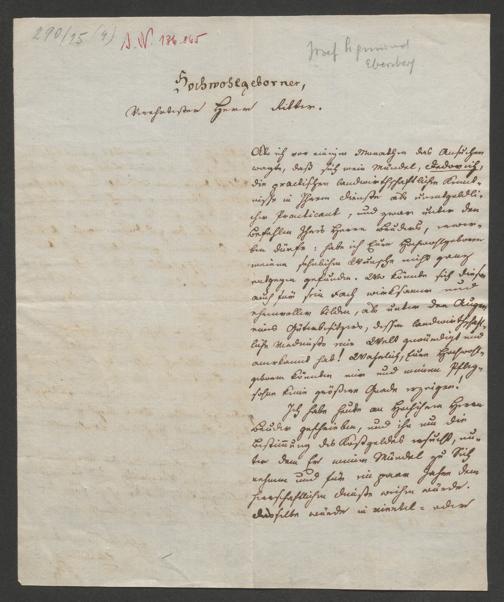 290/25 (4)
A. N. 186.865
Josef Sigmund
Ebersberg
Hochwohlgeborner,
Verehrtester Herr Ritter.
Als ich vor einigen Monathen das Ansuchen
wagte, daß sich mein Mündel,
die practischen landwirthschaftlichen Kennt-
nisse in Ihrem Dienste als unentgeldli-
cher Practicant, und zwar unter den
Befehlen Ihres Herrn Bruders, erwer-
ben dürfe: habe ich Eure Hochwohlgeboren
meinem Wunsche nicht ganz
entgegen gefunden. Wo könnte sich dieser
auch für sein Fach wirksamer und
ehrenvoller bilden, als unter den Augen
eines Gutsbesitzers, dessen landwirthschaft-
liche die Welt gewürdigt und
anerkannt hat! Wahrlich, Eure Hochwohl-
geboren könnten mir und meinem Pfleg-
sohne keine größere Gnade erzeigen!
Ich habe heute an Hochihren Herrn
Bruder geschrieben, und ihn um die
Bestimmung des Kostgeldes ersucht, un-
ter dem Er meinen Mündel zu Sich
nehmen und für ein paar Jahre dem
herrschaftlichen Dienste weihen würde.
Dasselbe würde in viertel- oder